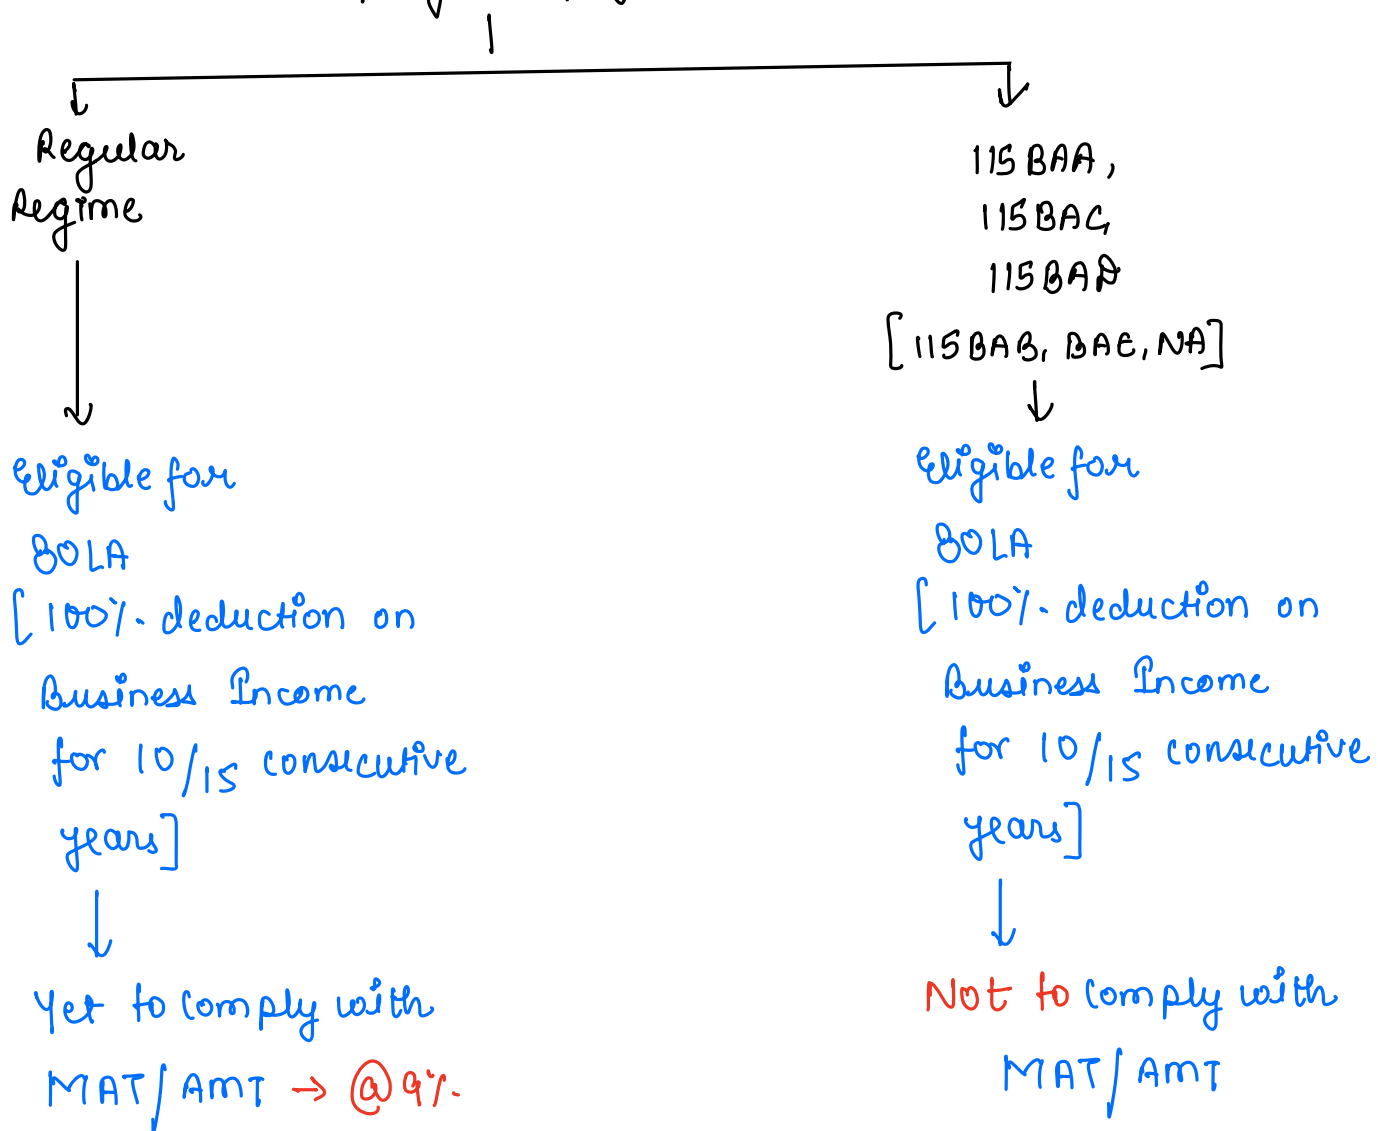 Regular
Regime
Eligible for
80LA
[100%. deduction on
Business Income
for 10/15 consecutive
years]
Yet to comply with
MAT/AMT → @9%.
115BAA,
115BAC,
115BAD
[115BAB, BAE, NA]
Eligible for
80LA
[100%. deduction on
Business Income
for 10/15 consecutive
years]
Not to comply with
MAT/AMT